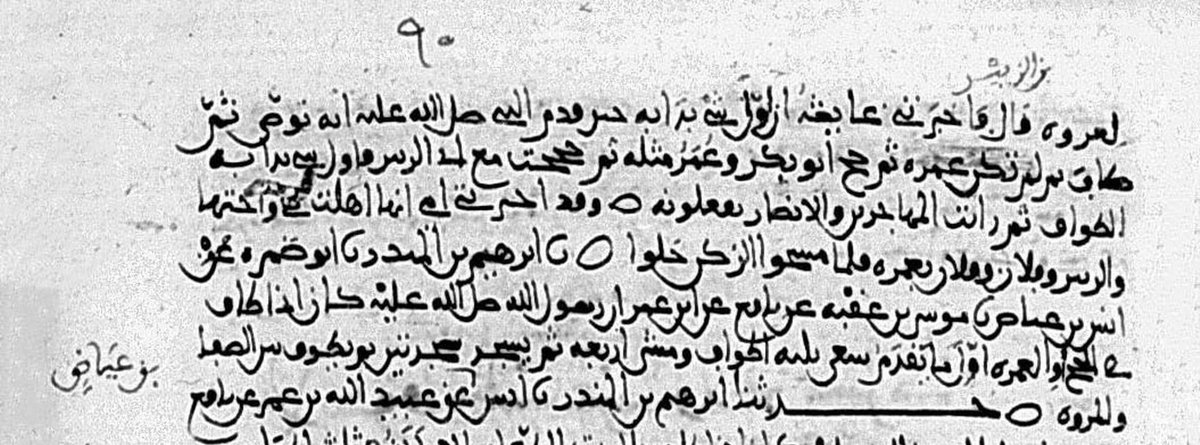 ٩٠
بن الزبير
لعروه قال فاخبرتني عايشه ان اول شي بدا به حين قدم النبي صلى الله عليه انه توضى ثم
طاف ثم لم تكن عمره ثم حج ابو بكر وعمر مثله ثم حججت مع ابي الزبير فاول شي بدا به
الطواف ثم رايت المهاجرين والانصار يفعلونه ٥ وقد اخبرتني امي انها اهلت هي واختها
والزبير وفلان وفلان بعمره فلما مسحوا الركن حلوا ٥ نا ابرهيم بن المنذر نا ابو ضمره
انس بن عياض نا موسى بن عقبه عن نافع عن ابن عمر ان رسول الله صلى الله عليه كان اذا طاف
في الحج او العمره اول ما يقدم سعى ثلثه اطواف ومشى اربعه ثم يسجد سجدتين ثم يطوف بين الصفا
بن عياض
والمروه ٥ حدثنا ابرهيم بن المنذر نا انس عن عبيد الله بن عمر عن نافع